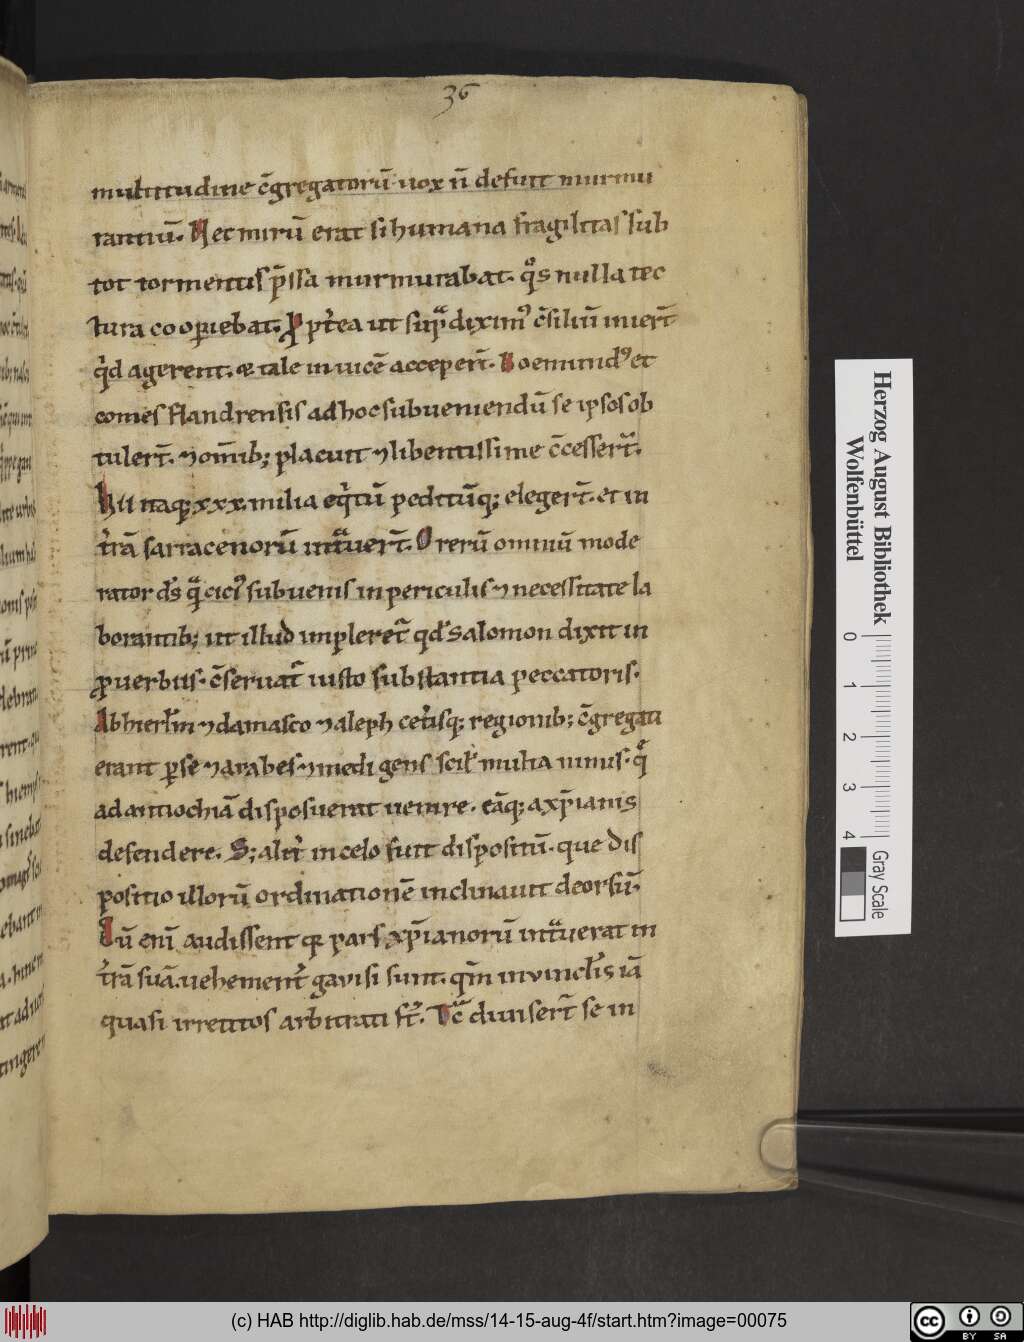 36
multitudine c̄gregatorū uox n̄ defuit murmu
rantiū. Nec mirū erat si humana fragilitas sub
tot tormentis p̄ssa murmurabat. qͦs nulla tec
tura cooperiebat. P p̄t̓ea ut sup̄ dixim᷒ c̄siliū iniert̄
qͥd agerent. & tale in uicē acceper̄t. Boemund᷒ et
comes flandrensis ad hoc subueniendū se ipsos ob
tuler̄t. ⁊ om̄ib; placuit ⁊ libentissime c̄cesser̄t.
Hii itaq; xxx. milia eqͥtū peditūq; eleger̄t. et in
t̓rā sarracenorū int̄uer̄t. O rerū omniū mode
rator ds̄ qͣ cici᷒ subuenis in periculis ⁊ necessitate la
borantib; ut illud impleret̄ qd̄ salomon dixit in
ꝓuerbiis. c̄seruat̄ iusto substantia peccatoris.
Ab hierl̄m ⁊ damasco ⁊ aleph cet̓isq; regionib; c̄gregati
erant ꝑse ⁊ arabes ⁊ medi gens scil̓ multa nimis. qͤ
ad antiochiā disposuerat uenire. eāq; a xp̄ianis
defendere. S; alit̓ in celo fuit dispositū. que dis
positio illorū ordinationē inclinauit deorsū.
Cū eni̅ audissent qꝛ pars xp̄ianorū int̄uerat in
t̓rā suā. uehement̓ gauisi sunt. qm̄ in uinclis̄ iā
quasi irretitos arbitrati st̄. Tc̄ diuiser̄t se in
Herzog August Bibliothek
Wolfenbüttel
0 1 2 3 4
Gray Scale
(c) HAB http://diglib.hab.de/mss/14-15-aug-4f/start.htm?image=00075
cc BY SA